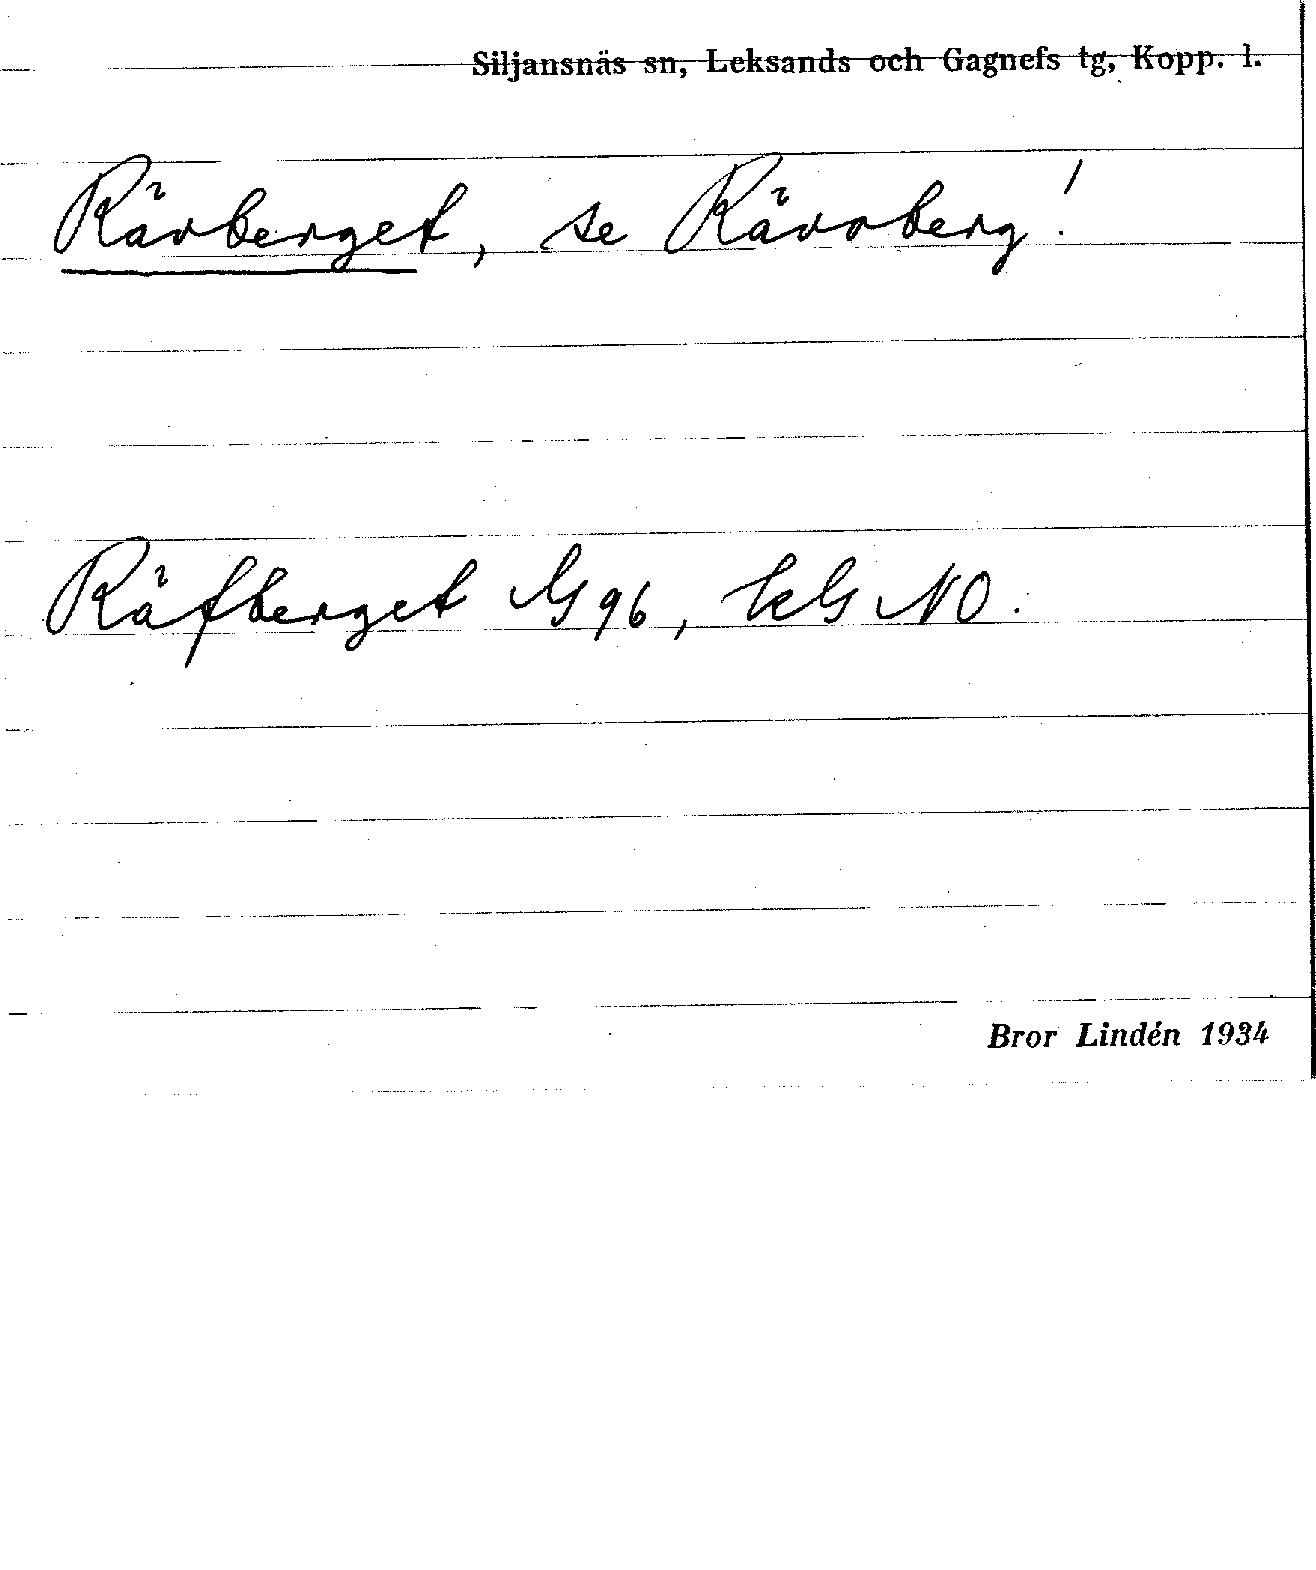 Siljansnäs sn, Leksands och Gagnefs tg, Kopp. l.
Rävberget, se Rävoberg!
Räfberget G 96, kG NO.
Bror Lindén 1934